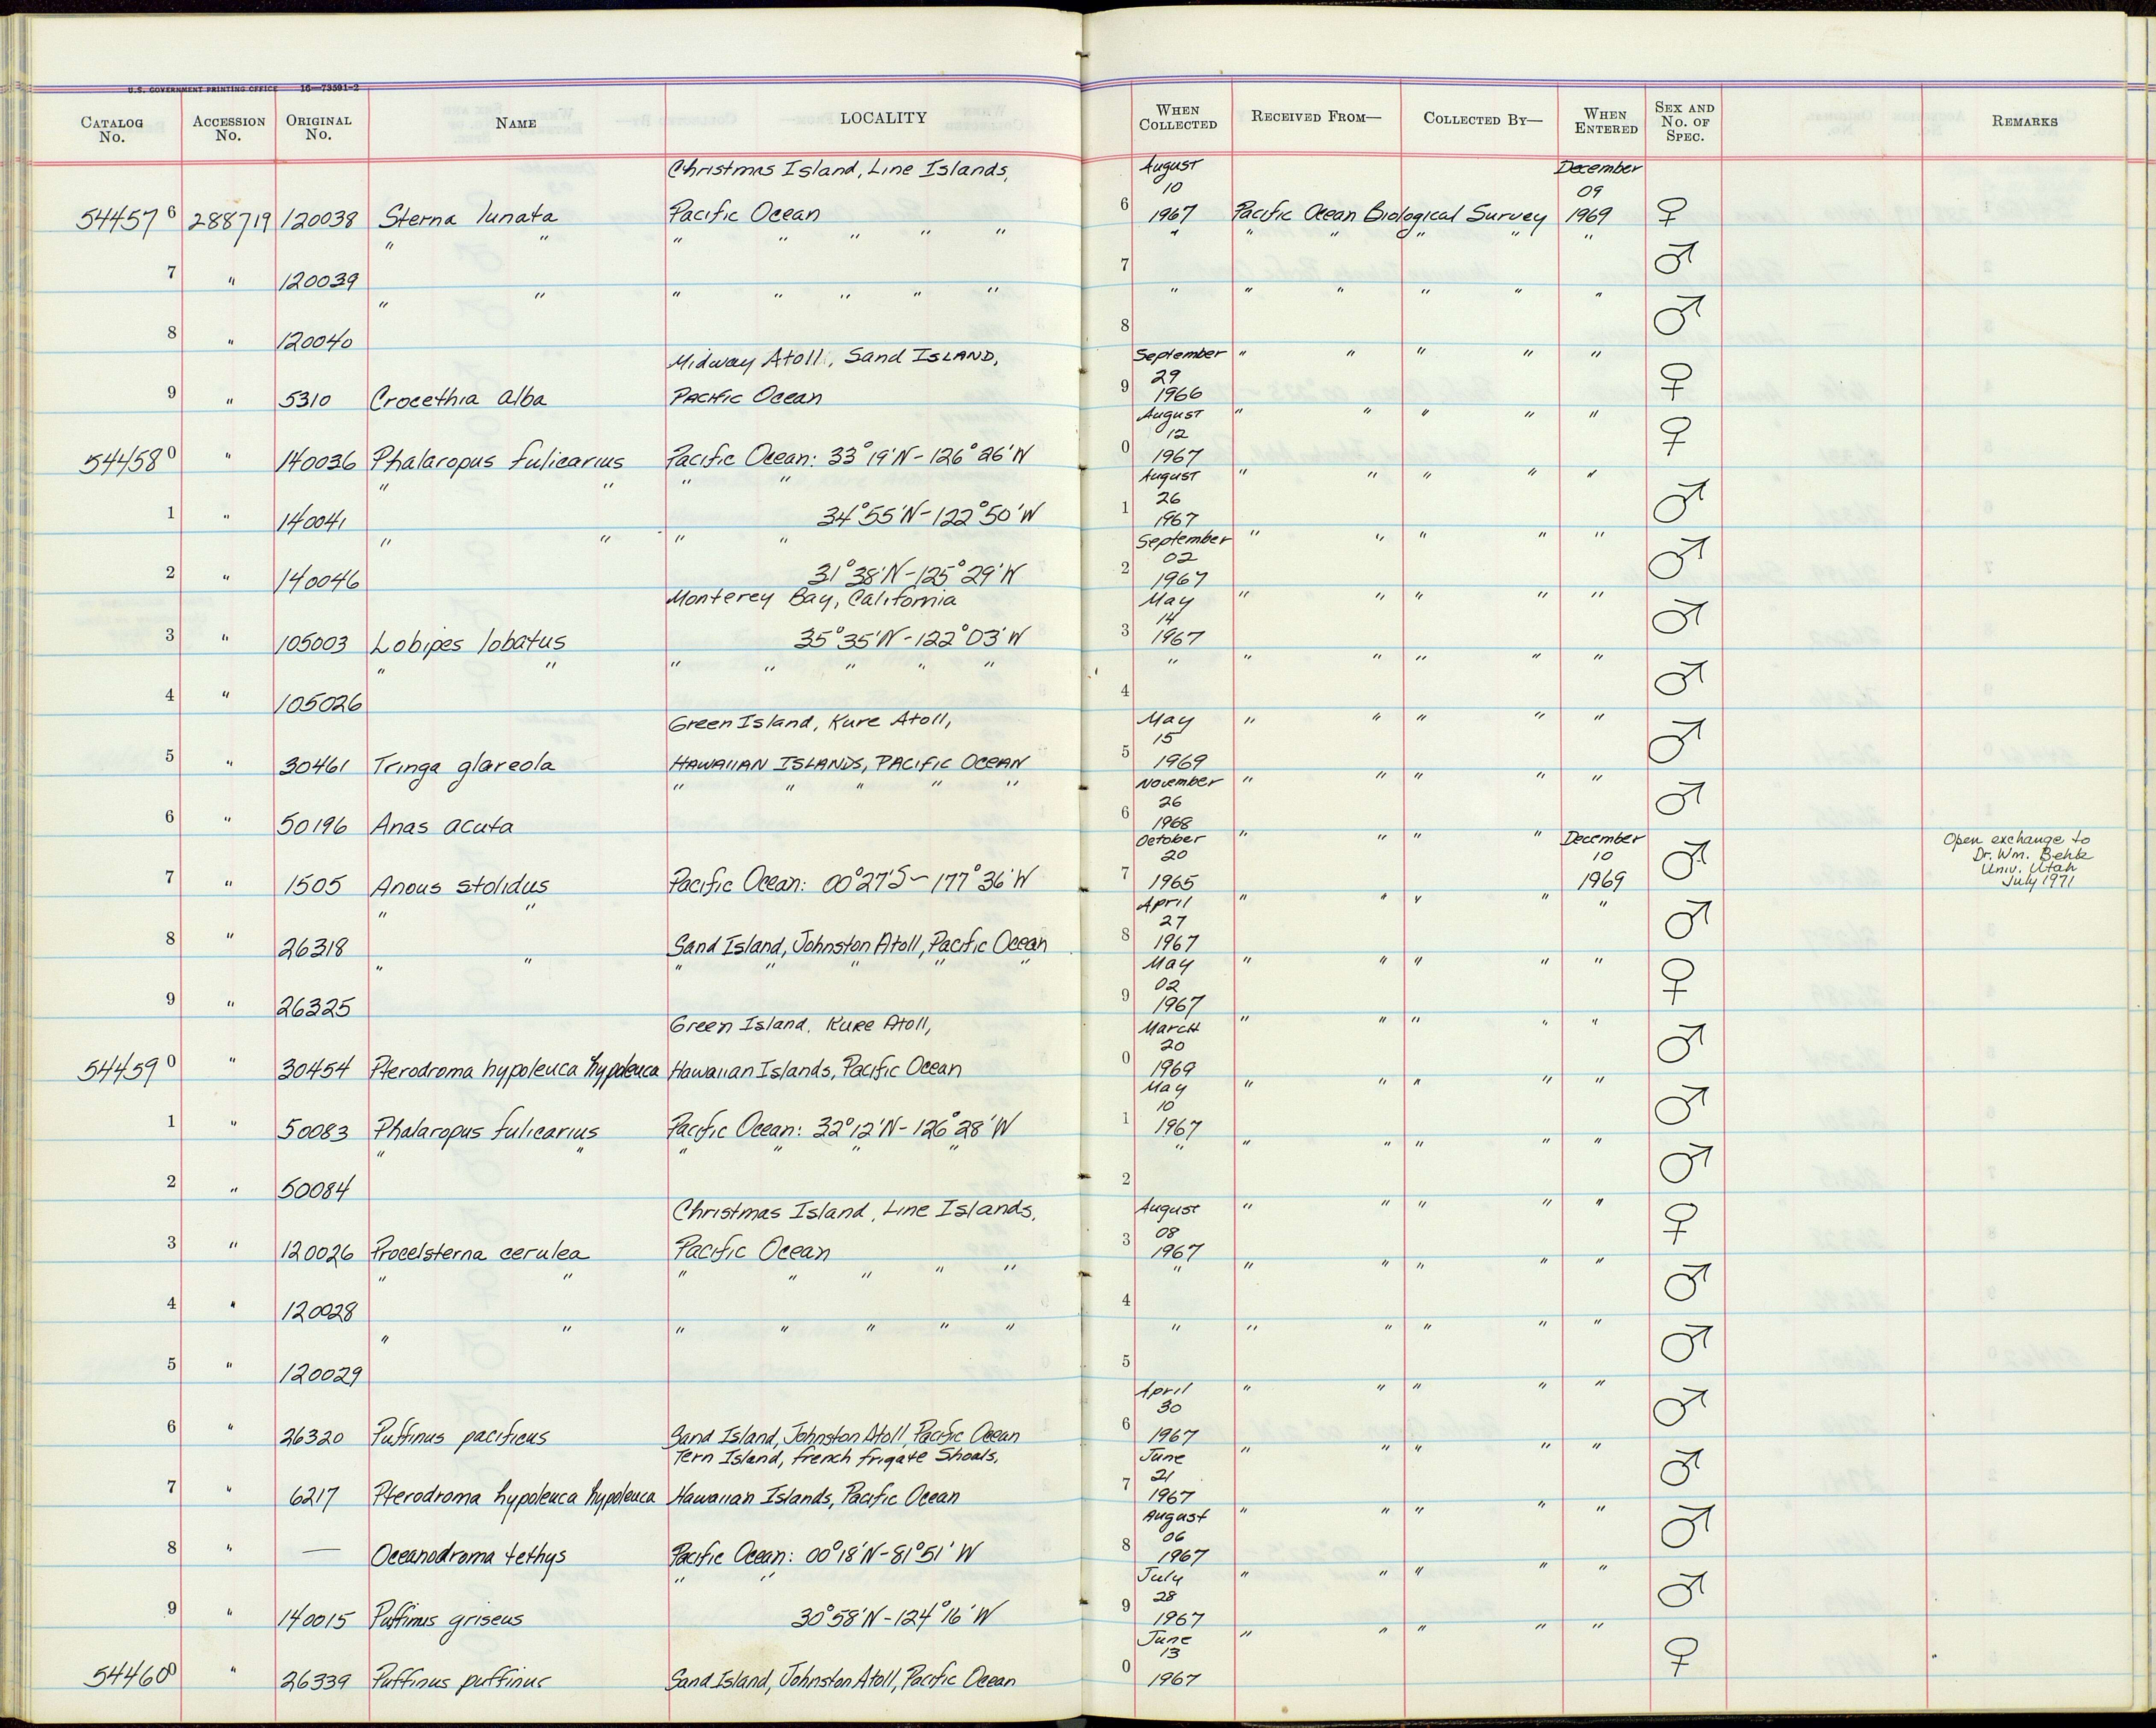 U.S. GOVERNMENT PRINTING OFFICE 16—73591-2
CATALOG No. ACCESSION No. ORIGINAL No. NAME LOCALITY WHEN COLLECTED RECEIVED FROM— COLLECTED BY— WHEN ENTERED SEX AND No. OF SPEC. REMARKS
Christmas Island, Line Islands, August 10 December 09
544576 288719 120038 Sterna lunata Pacific Ocean 6 1967 Pacific Ocean Biological Survey 1969 ♀
7 " 120039 " " " " " " " 7 " " " " " " ♂
8 " 120040 " " " " " " " 8 " " " " " " ♂
Midway Atoll, Sand ISLAND, September 29
9 " 5310 Crocethia alba PACIFIC Ocean 9 1966 " " " " " ♀
August 12
544580 " 140036 Phalaropus fulicarius Pacific Ocean: 33°19'N-126°26'W 0 1967 " " " " " ♀
August 26
1 " 140041 " " " " 34°55'N-122°50'W 1 1967 " " " " " ♂
September 02
2 " 140046 " " " " 31°38'N-125°29'W 2 1967 " " " " " ♂
Monterey Bay, California May 14
3 " 105003 Lobipes lobatus 35°35'N-122°03'W 3 1967 " " " " " ♂
4 " 105026 " " " " " " " 4 " " " " " " ♂
Green Island, Kure Atoll, May 15
5 " 30461 Tringa glareola HAWAIIAN ISLANDS, PACIFIC OCEAN 5 1969 " " " " " ♂
November 26
6 " 50196 Anas acuta " " " " " 6 1968 " " " " " ♂
October 20 December 10
7 " 1505 Anous stolidus Pacific Ocean: 00°27'S-177°36'W 7 1965 " " " " 1969 ♂
Open exchange to
Dr. Wm. Behle
Univ. Utah
July 1971
April 27
8 " 26318 " " Sand Island, Johnston Atoll, Pacific Ocean 8 1967 " " " " " ♂
May 02
9 " 26325 " " " " " " " 9 1967 " " " " " ♀
Green Island, Kure Atoll, March 20
544590 " 30454 Pterodroma hypoleuca hypoleuca Hawaiian Islands, Pacific Ocean 0 1969 " " " " " ♂
May 10
1 " 50083 Phalaropus fulicarius Pacific Ocean: 32°12'N-126°28'W 1 1967 " " " " " ♂
2 " 50084 " " " " " " 2 " " " " " " ♂
Christmas Island, Line Islands, August 08
3 " 120026 Procelsterna cerulea Pacific Ocean 3 1967 " " " " " ♀
4 " 120028 " " " " " " " 4 " " " " " " ♂
5 " 120029 " " " " " " " 5 " " " " " " ♂
April 30
6 " 26320 Puffinus pacificus Sand Island, Johnston Atoll, Pacific Ocean 6 1967 " " " " " ♂
Tern Island, French Frigate Shoals, June 21
7 " 6217 Pterodroma hypoleuca hypoleuca Hawaiian Islands, Pacific Ocean 7 1967 " " " " " ♂
August 06
8 " — Oceanodroma tethys Pacific Ocean: 00°18'N-81°51'W 8 1967 " " " " " ♂
July 28
9 " 140015 Puffinus griseus " " 30°58'N-124°16'W 9 1967 " " " " " ♂
June 13
544600 " 26339 Puffinus puffinus Sand Island, Johnston Atoll, Pacific Ocean 0 1967 " " " " " ♀